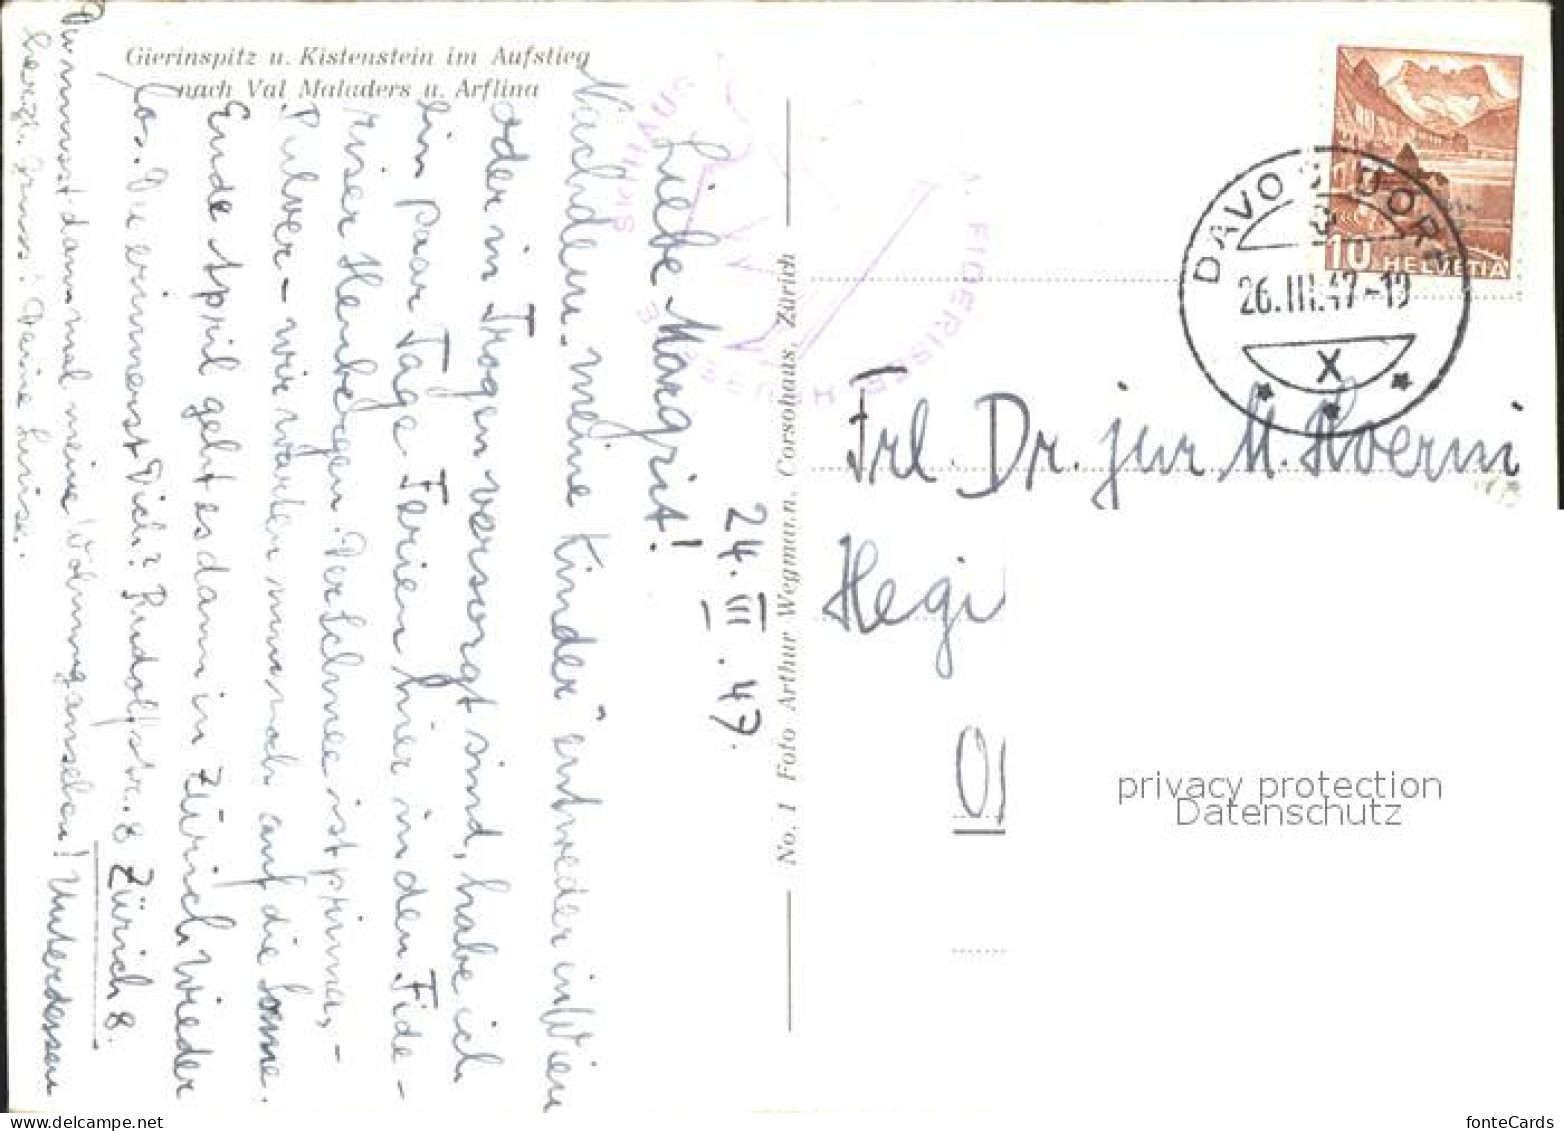 Gierinspitz u. Kistenstein im Aufstieg
nach Val Maladers u. Arflina
24. III. 47.
Liebe Margrit!
Nachdem „meine Kinder" entweder in Wien
oder in Trogen versorgt sind, habe ich
ein paar Tage Ferien hier in den Fide-
riser Heubergen. Der Schnee ist prima, -
Pulver - wir warten nur noch auf die Sonne.
Ende April geht es dann in Zürich wieder
los. Du erinnerst Dich? Rudolfstr. 8 Zürich 8.
Du musst dann mal meine Wohnung ansehen! Unterdessen
herzl. Gruss! Deine Luise.
No. 1 Foto Arthur Wegmann, Corsohaus, Zürich
FIDERISER
SKIHAUS
10 HELVETIA
DAVOS DORF
26.III.47-19
X
Frl. Dr. jur M. Hoerni
Hegi
privacy protection
Datenschutz
fonteCards